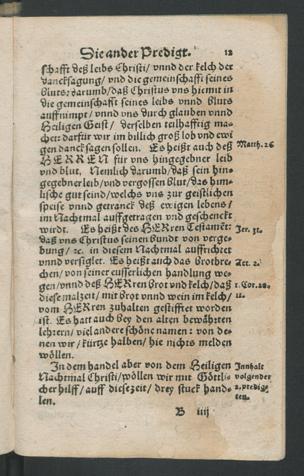 Die ander Predigt. 12
schafft deß leibs Christi/ vnnd der kelch der
dancksagung/ vnd die gemeinschafft seines
bluts: darumb/ daß Christus vns hiemit in
die gemeinschafft seines leibs vnnd bluts
auffnimpt/ vnnd vns durch glauben vnnd
Heiligen Geist/ derselben teilhafftig ma-
chet: darfür wir im billich groß lob vnd ewi
gen danck sagen sollen. Es heißt auch deß
HERREN für vns hingegebner leib
vnd blut, Nemlich darumb/ daß sein hin-
gegebner leib/ vnd vergossen blut/ das him-
lische gut seind/ welchs vns zur geistlichen
speise vnnd getranck deß ewigen lebens/
im Nachtmal auffgetragen vnd geschenckt
wirdt. Es heißt des HERren Testament:
daß vns Christus seinen bundt von verge-
bung/ ꝛc. in diesem Nachtmal auffrichtet
vnnd versiglet. Es heißt auch das Brotbre-
chen/ von seiner eusserlichen handlung we-
gen/ vnnd deß HERren brot vnd kelch/ daß
diese malzeit/ mit brot vnnd wein im kelch/
vom HERren zuhalten gestifftet worden
ist. Es hatt auch bey den alten bewährten
lehrern/ viel andere schöne namen: von de-
nen wir/ kürtze halben/ hie nichts melden
wöllen.
In dem handel aber von dem Heiligen
Nachtmal Christi/ wöllen wir mit Göttli-
cher hilff/ auff diesezeit/ drey stuck hand-
len.
B iiij
Matth. 26
Jer. 31.
Act. 2.
1. Cor. 10.
11.
Innhalt
volgender
2. predig-
ten.